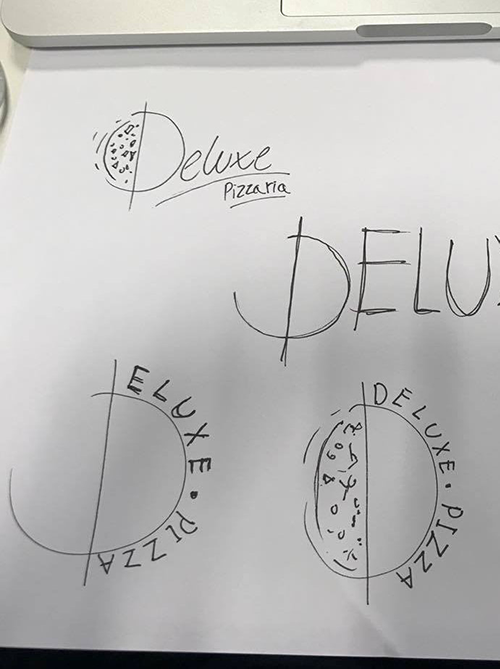 Deluxe
Pizzaria
DELUX
DELUXE • PIZZA
DELUXE • PIZZA